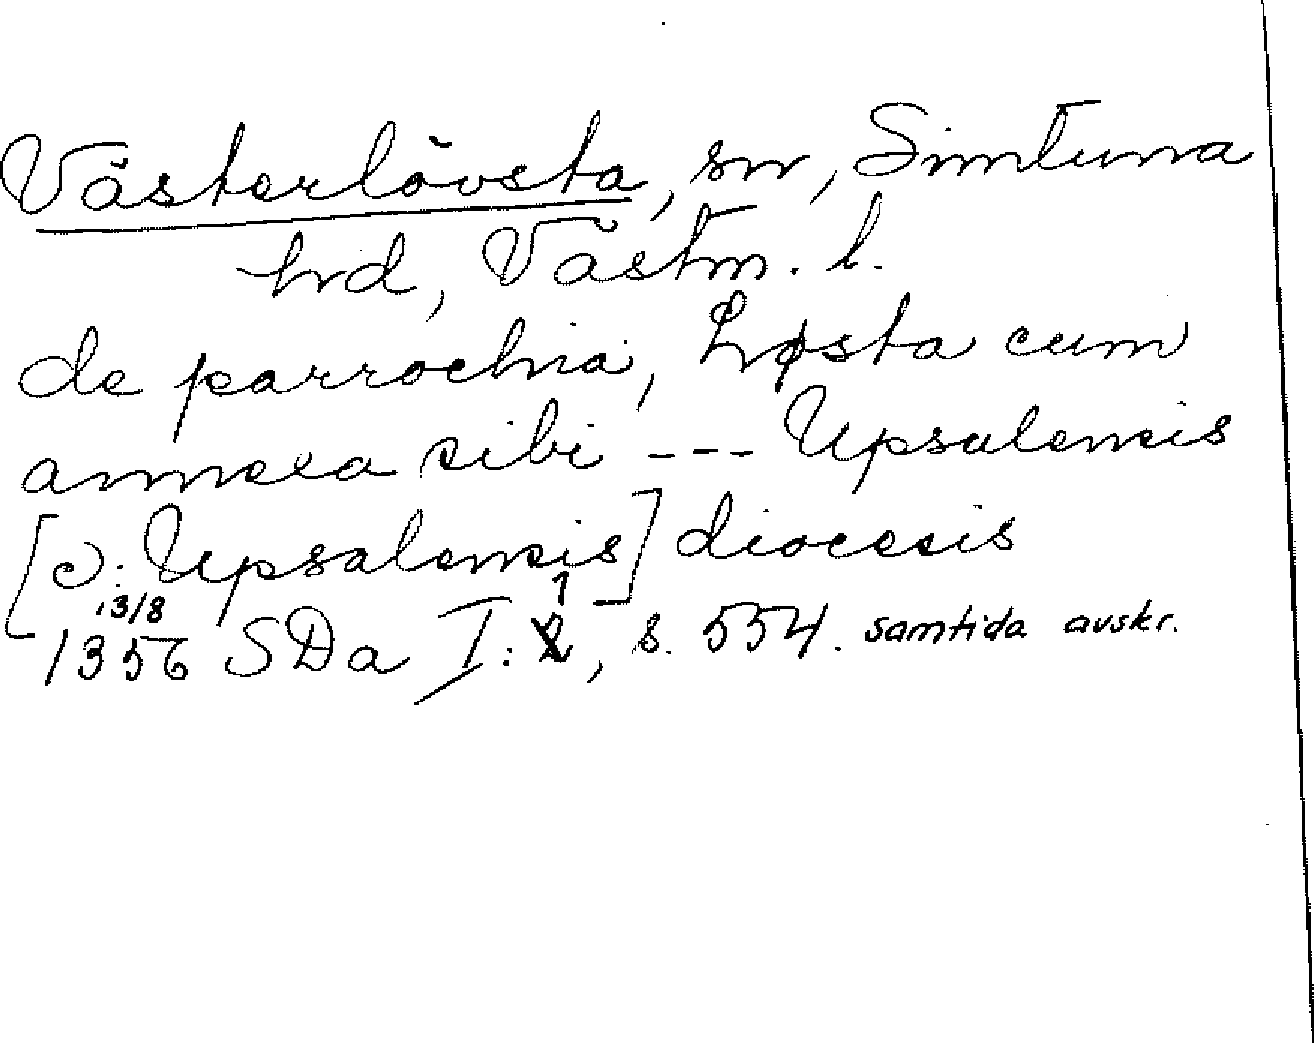 Västerlövsta, sn, Simtuna
hrd, Västm. l.
de parrochia, Løsta cum
annexa sibi --- Upsalensis
[ɔ: Upsalensis] diocesis
13/8 1
1356 SDa I: 2, s. 554. samtida avskr.